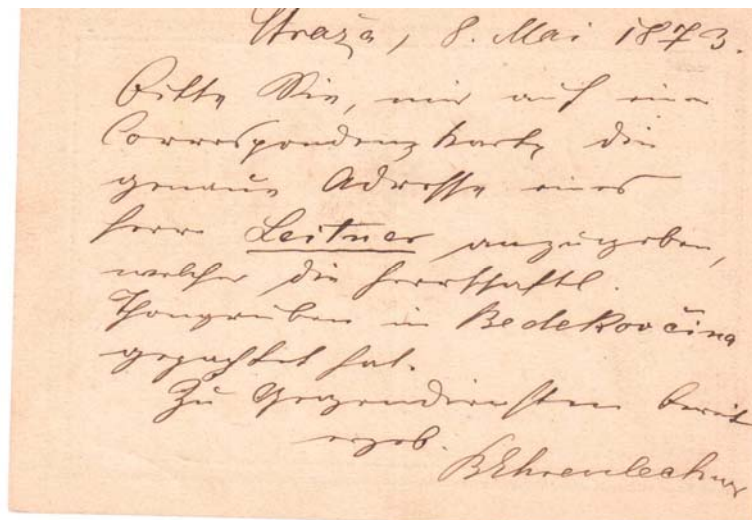 Straža, 8. Mai 1873.
Bitte Sie, mir auf einer
Correspondenzkarte die
genaue Adresse eines
Herrn Leitner anzugeben,
welcher die herrschaftl.
Thongruben in Bedekovčina
gepachtet hat.
Zu Gegendiensten bereit
ergeb.
BEhrenlechner